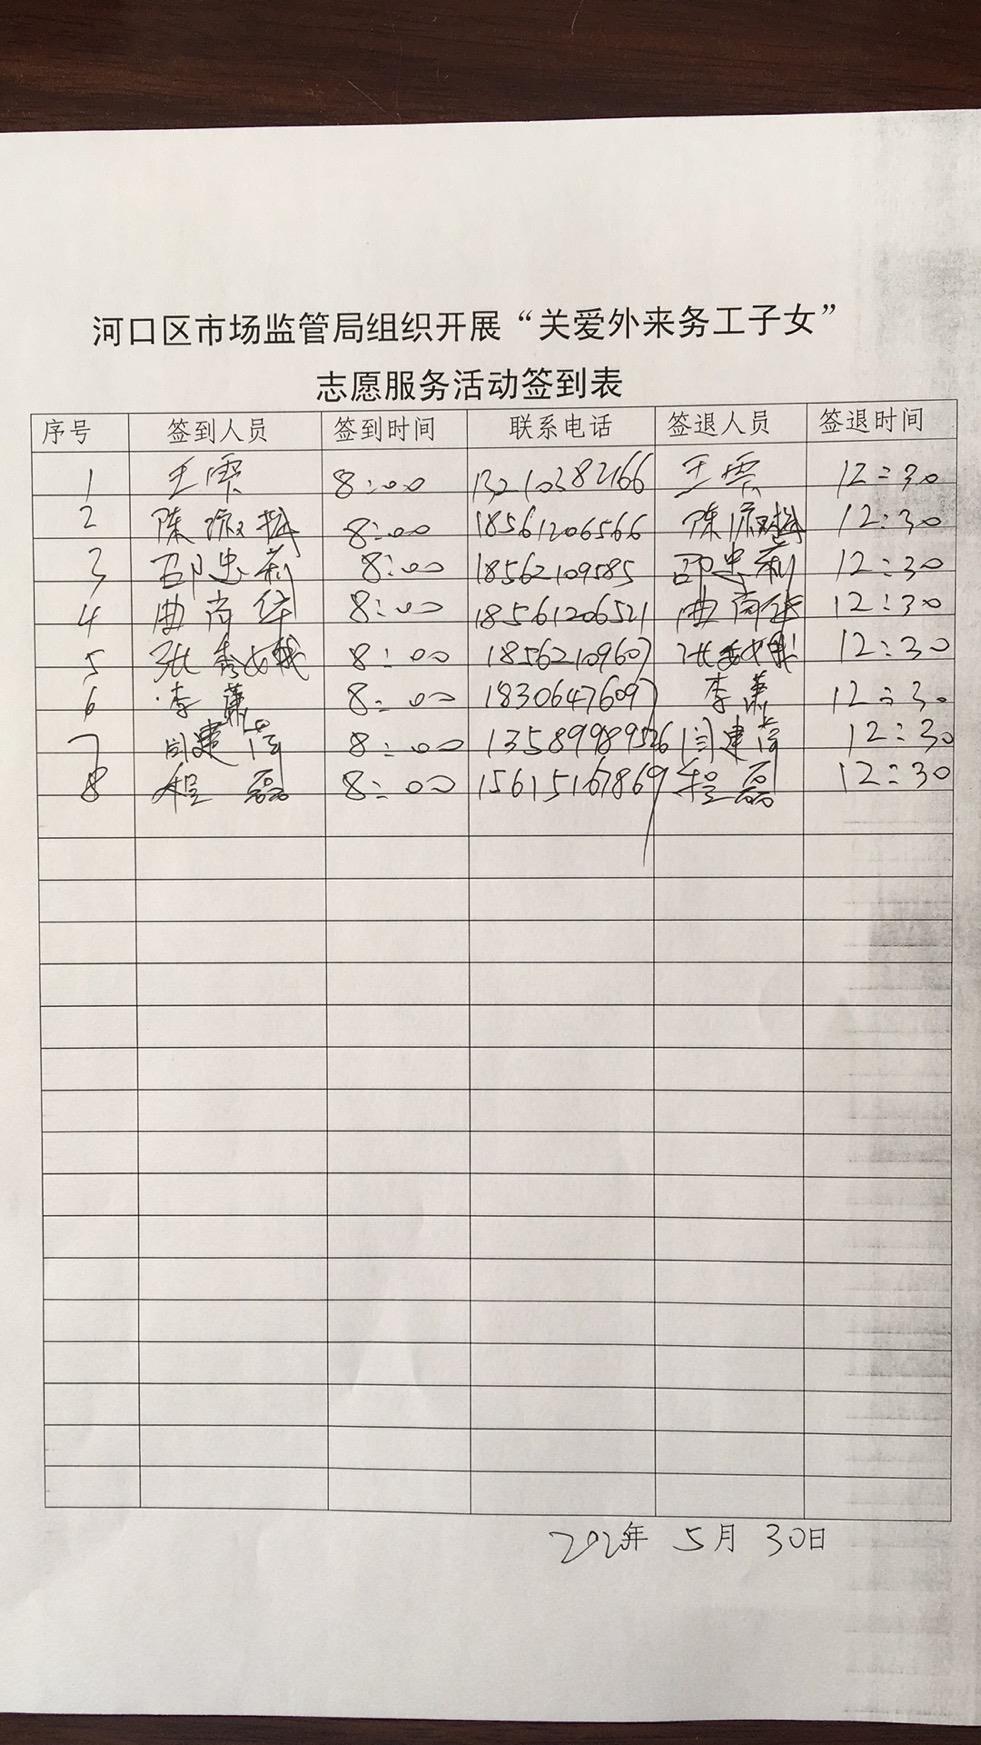 河口区市场监管局组织开展“关爱外来务工子女”
志愿服务活动签到表
序号 签到人员 签到时间 联系电话 签退人员 签退时间
1 王霞 8:00 13210382166 王霞 12:30
2 陈淑梅 8:00 18561206566 陈淑梅 12:30
3 邵忠莉 8:00 18562109585 邵忠莉 12:30
4 曲尚华 8:00 18561206521 曲尚华 12:30
5 张秀娥 8:00 18562109607 张秀娥 12:30
6 李萧 8:00 18306476097 李萧 12:30
7 闫建岗 8:00 13589989526 闫建岗 12:30
8 程磊 8:00 15615167869 程磊 12:30
年 5月 30日